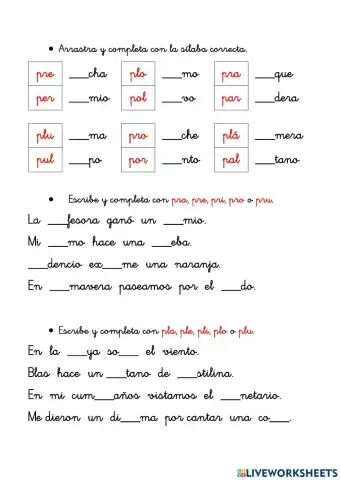 • Arrastra y completa con la sílaba correcta.
pre ___cha plo ___mo pra ___que
per ___mio pol ___vo par ___dera
plu ___ma pro ___che plá ___mera
pul ___po por ___nto pal ___tano
• Escribe y completa con pra, pre, pri, pro o pru.
La ___fesora ganó un ___mio.
Mi ___mo hace una ___eba.
___dencio ex___me una naranja.
En ___mavera paseamos por el ___do.
• Escribe y completa con pla, ple, pli, plo o plu.
En la ___ya so___ el viento.
Blas hace un ___tano de ___stilina.
En mi cum___años vistamos el ___netario.
Me dieron un di___ma por cantar una co___.
LIVEWORKSHEETS